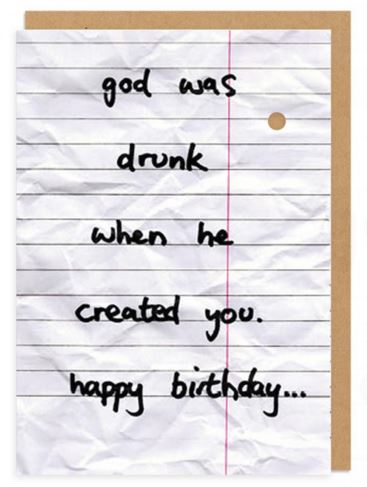 god was
drunk
when he
created you.
happy birthday...